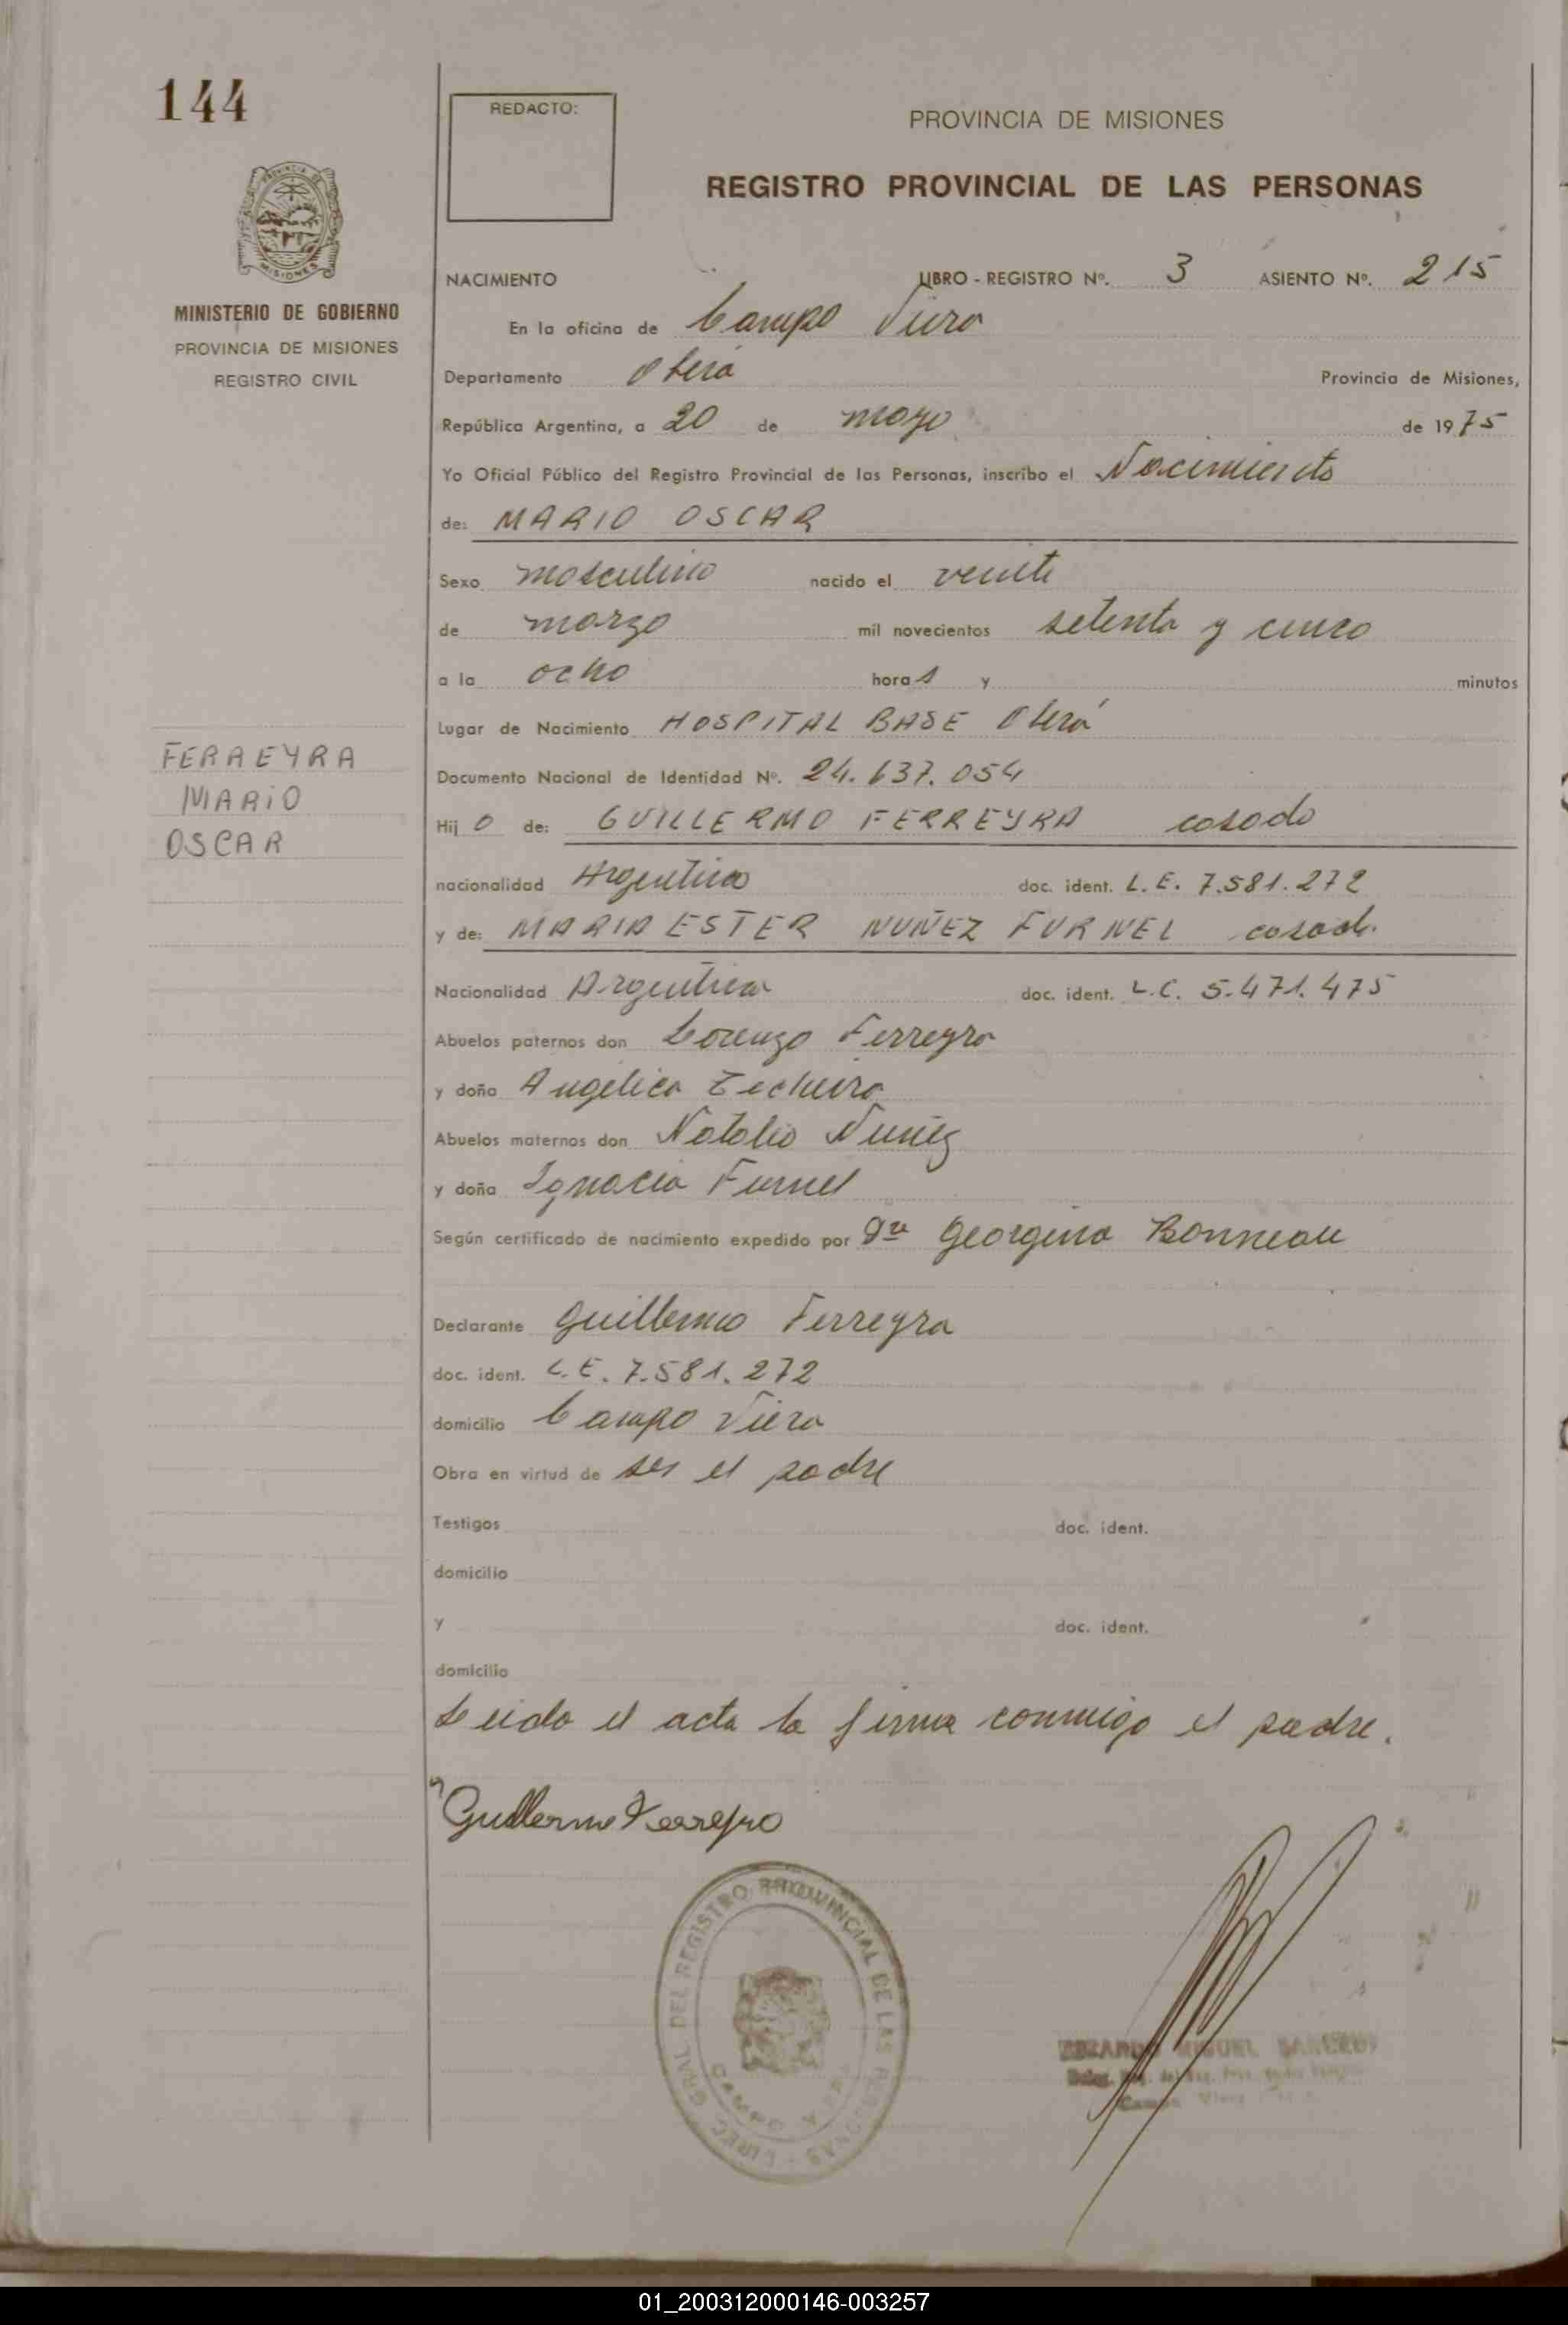 144
REDACTO:
PROVINCIA DE MISIONES
REGISTRO PROVINCIAL DE LAS PERSONAS
MISIONES
MINISTERIO DE GOBIERNO
PROVINCIA DE MISIONES
REGISTRO CIVIL
NACIMIENTO LIBRO - REGISTRO Nº. 3 ASIENTO Nº. 215
En la oficina de Campo Viera
Departamento Oberá Provincia de Misiones,
República Argentina, a 20 de mayo de 1975
Yo Oficial Público del Registro Provincial de las Personas, inscribo el Nacimiento
de: MARIO OSCAR
Sexo masculino nacido el veinte
de marzo mil novecientos setenta y cinco
a la ocho horas y minutos
Lugar de Nacimiento HOSPITAL BASE Oberá
FERREYRA
MARIO
OSCAR
Documento Nacional de Identidad Nº. 24.637.054
Hijo de: GUILLERMO FERREYRA casado
nacionalidad Argentino doc. ident. L.E. 7.581.272
y de: MARIA ESTER NUÑEZ FURNEL casada
Nacionalidad Argentina doc. ident. L.C. 5.471.475
Abuelos paternos don Lorenzo Ferreyra
y doña Angélica
Abuelos maternos don Natalio Nuñez
y doña Ignacia Furnel
Según certificado de nacimiento expedido por Dra Georgina Bonneau
Declarante Guillermo Ferreyra
doc. ident. L.E. 7.581.272
domicilio Campo Viera
Obra en virtud de ser el padre
Testigos doc. ident.
domicilio
y doc. ident.
domicilio
Leida el acta la firma conmigo el padre.
Guillermo Ferreyra
DIREC. GRAL DEL REGISTRO PROVINCIAL DE LAS PERSONAS
CAMPO
MIGUEL
Campo Viera
01_200312000146-003257